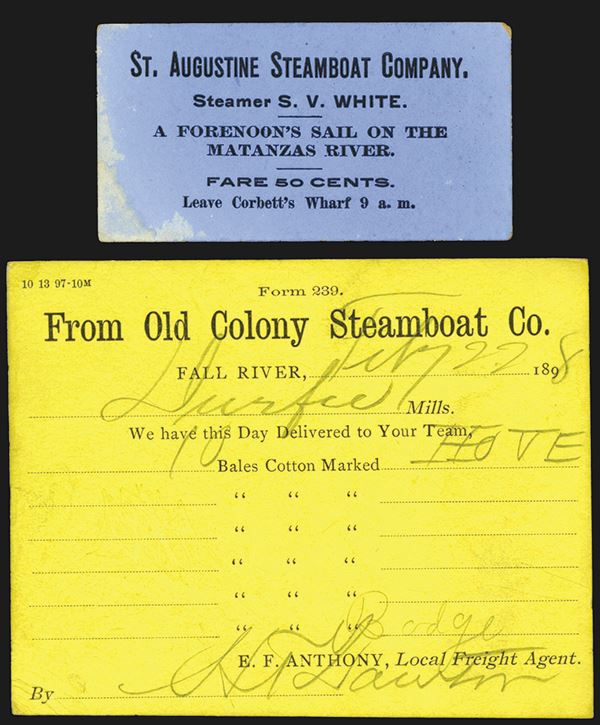 ST. AUGUSTINE STEAMBOAT COMPANY.
Steamer S. V. WHITE.
A FORENOON'S SAIL ON THE
MATANZAS RIVER.
FARE 50 CENTS.
Leave Corbett's Wharf 9 a. m.
10 13 97-10M
Form 239.
From Old Colony Steamboat Co.
FALL RIVER, Feby 22 1898
Durfee Mills.
We have this Day Delivered to Your Team,
10 Bales Cotton Marked HOTE
" " "
" " "
" " "
" " "
" " " Bodge
E. F. ANTHONY, Local Freight Agent.
By